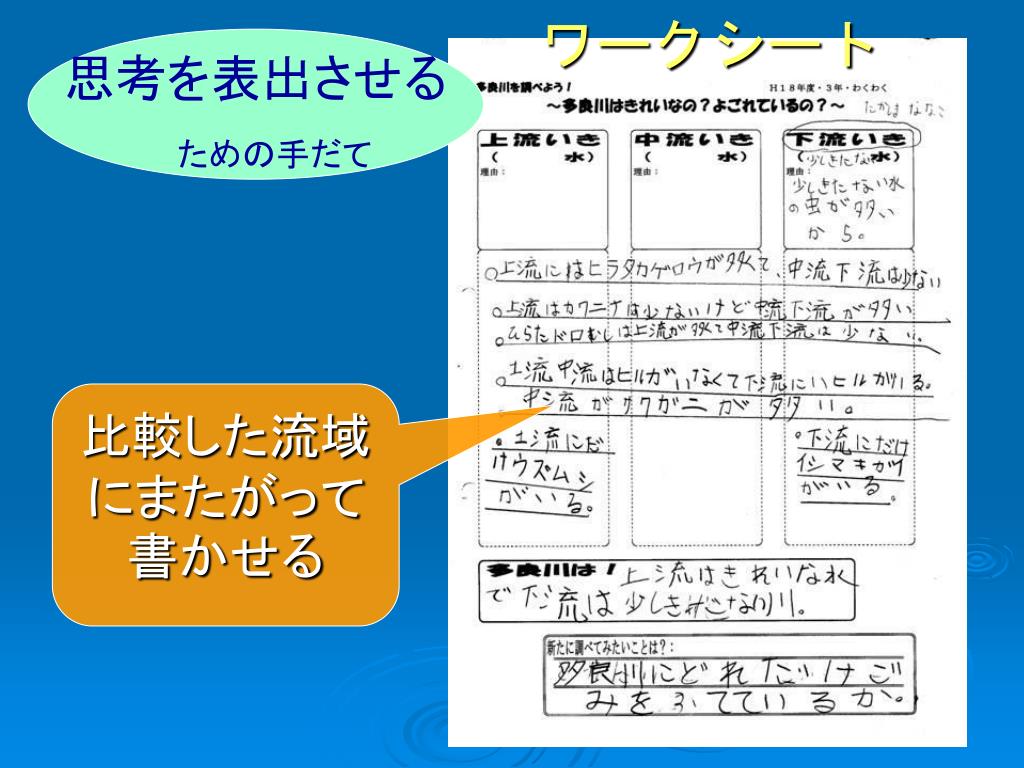 ワークシート
思考を表出させる
ための手だて
多良川を調べよう！
H18年度・3年・わくわく
～多良川はきれいなの？よごれているの？～
上流いき
（　　　水）
理由：
中流いき
（　　　水）
理由：
下流いき
（少しきたない水）
理由：
少しきたない水
の虫が多い
から。
○上流にはヒラタカゲロウが多くて、中流下流は少ない
○上流はカワニナは少ないけど中流下流が多い
○ひらたドロむしは上流が多くて中流下流は少ない。
○上流中流はヒルがいなくて下流にいヒルがいる。
中流がサワガニが多い。
・上流にだ
けウズムシ
がいる。
・下流にだけ
イシマキガイ
がいる。
比較した流域
にまたがって
書かせる
多良川は！上流はきれいな水
で下流は少しきたない川。
新たに調べてみたいことは？：
多良川にどれだいけご
みをふてているか。